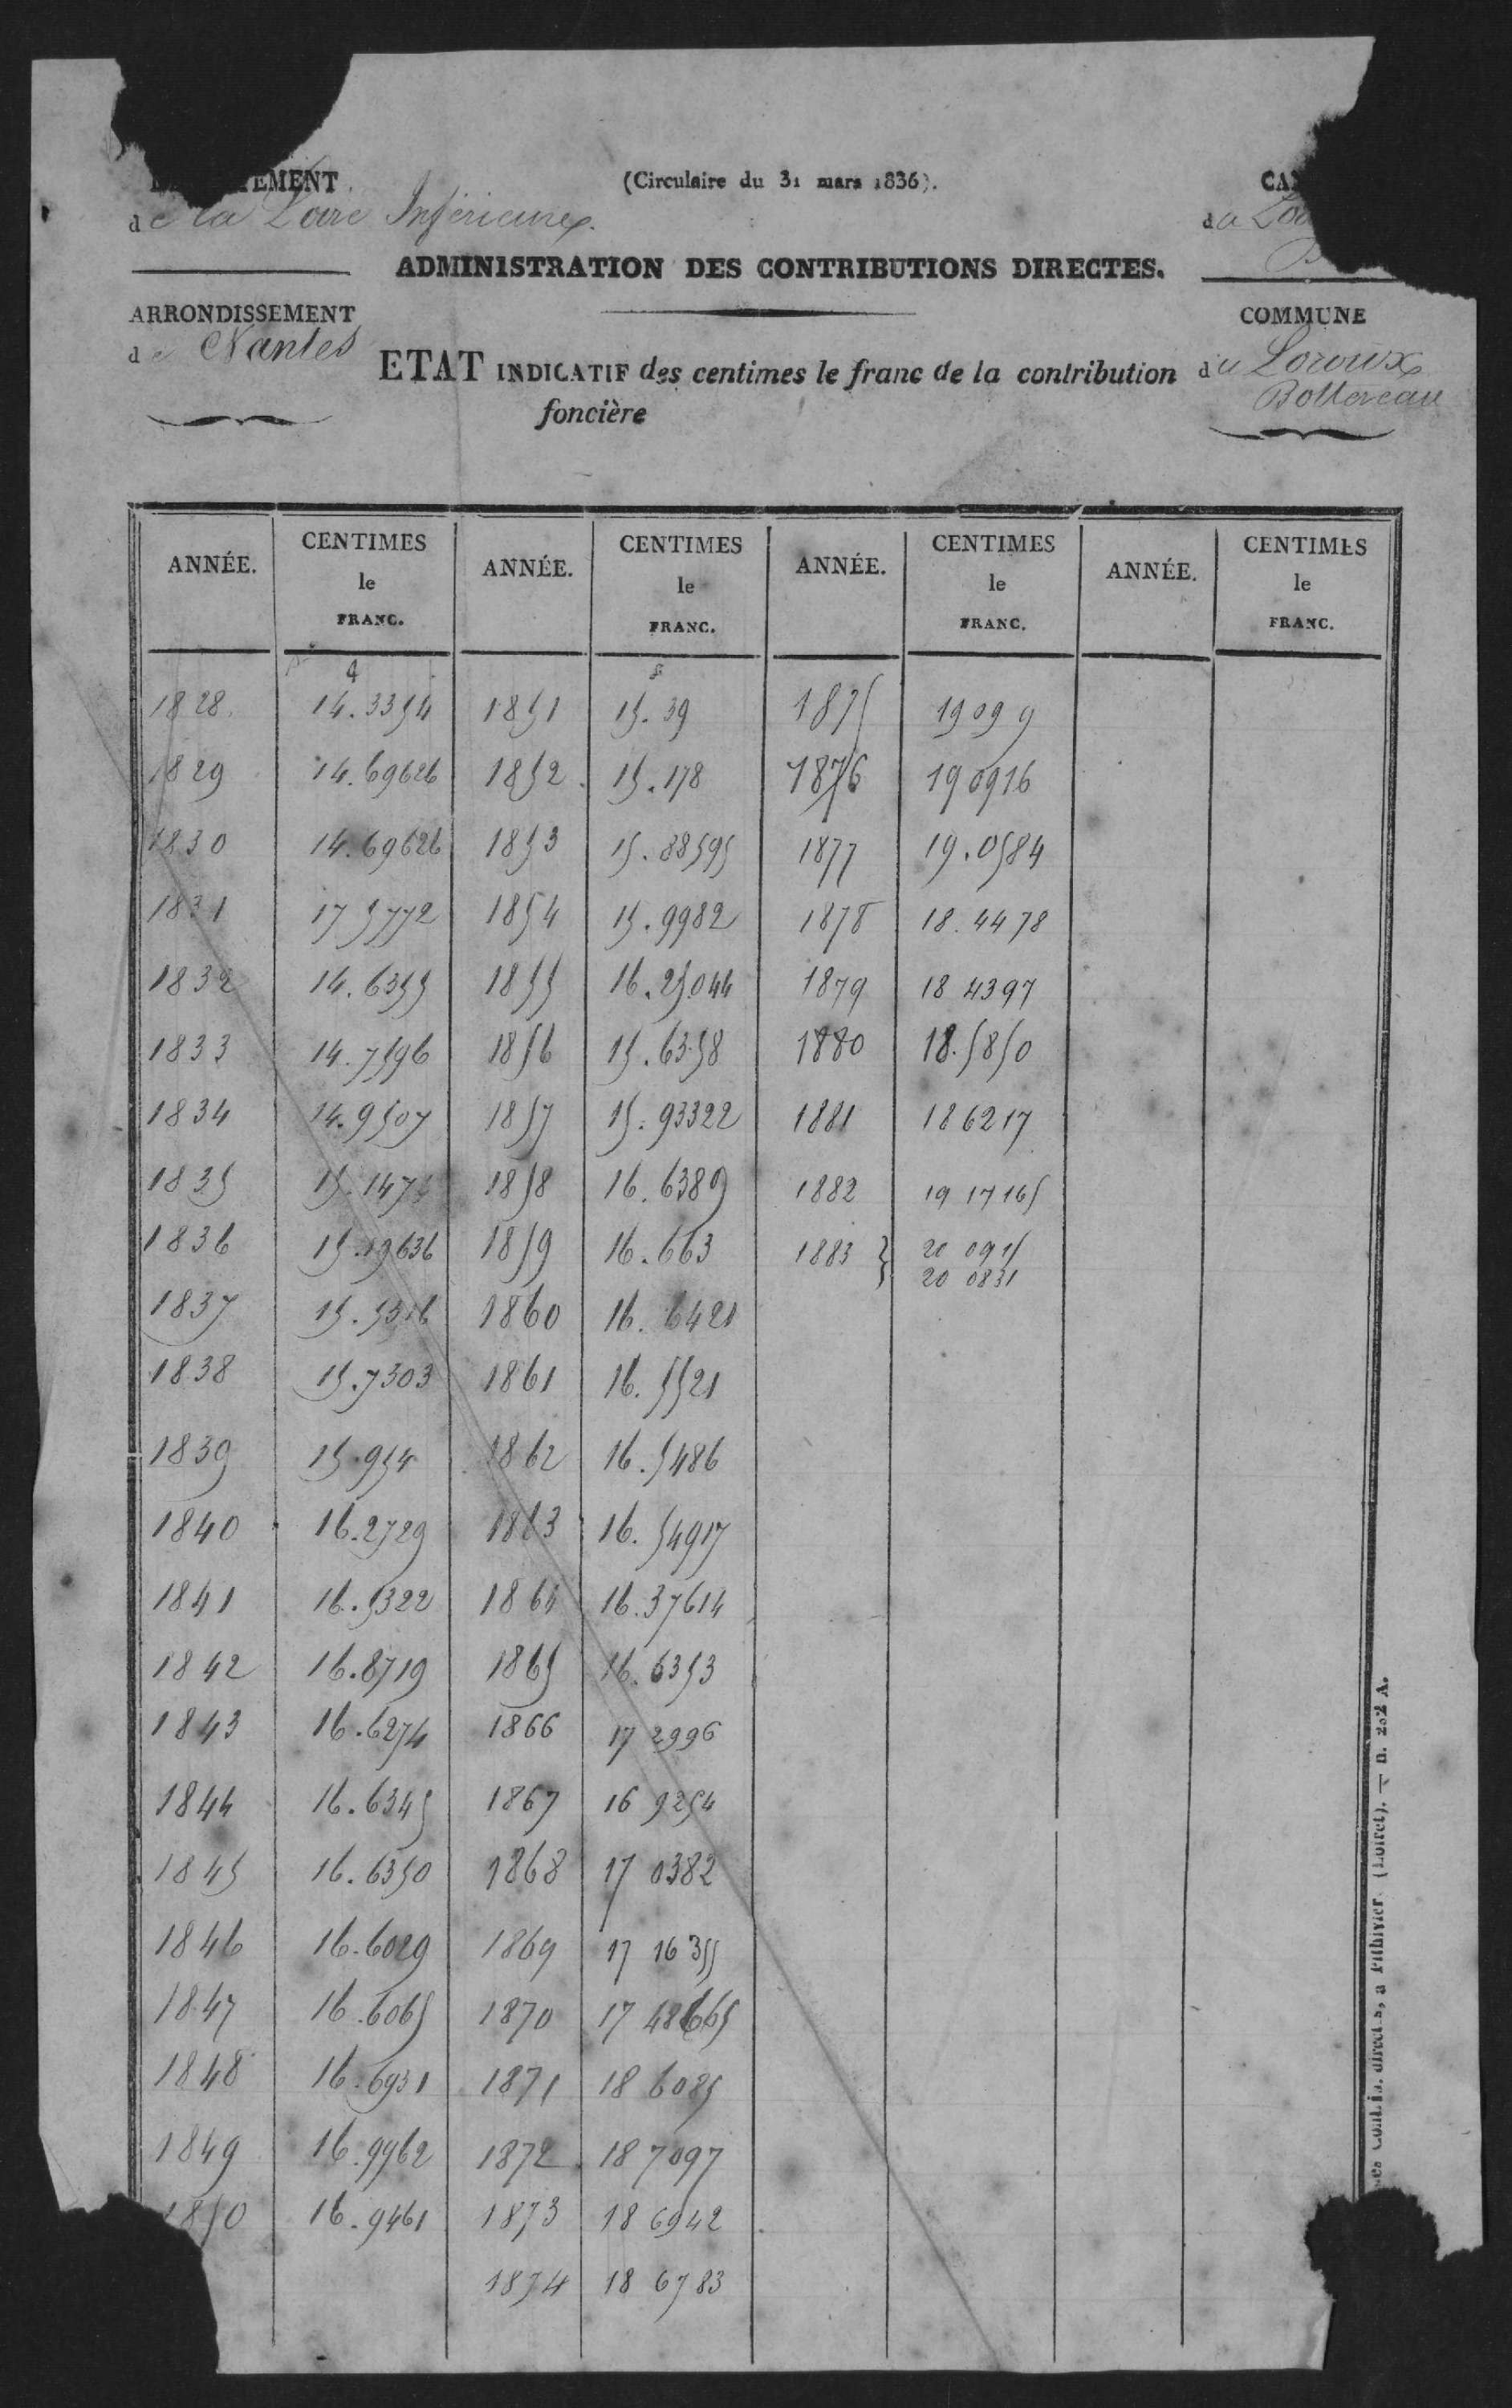 TEMENT
de la Loire Inférieure.
(Circulaire du 31 mars 1836).
CA
du
ADMINISTRATION DES CONTRIBUTIONS DIRECTES.
ARRONDISSEMENT
de Nantes
COMMUNE
du Loroux
Bottereau
ETAT INDICATIF des centimes le franc de la contribution
foncière
ANNÉE. CENTIMES le FRANC. ANNÉE. CENTIMES le FRANC. ANNÉE. CENTIMES le FRANC. ANNÉE. CENTIMES le FRANC.
1828. 14.3354 1851 15.39 1875 19 09 9
1829 14.69626 1852. 15.178 1876 19 0916
1830 14.69626 1853 15.88595 1877 19.0584
1831 17 5772 1854 15.9982 1878 18.4478
1832 14.6355 1855 16.25044 1879 18 4397
1833 14.7596 1856 15.6358 1880 18.5850
1834 14.9507 1857 15.93322 1881 18 6217
1835 15.1475 1858 16.6389 1882 19 17165
1836 15.19636 1859 16.663 1883 } 20 0915
20 0831
1837 15.5316 1860 16.6421
1838 15.7303 1861 16.5521
1839 15.954 1862 16.5486
1840 16.2729 1863 16.54917
1841 16.5322 1864 16.37614
1842 16.8719 1865 16.6353
1843 16.6274 1866 17 2996
1844 16.6345 1867 16 9254
1845 16.6350 1868 17 0382
1846 16.6029 1869 17 16355
1847 16.6065 1870 17 48665
1848 16.6931 1871 18 6085
1849 16.9962 1872 18 7097
1850 16.9461 1873 18 6942
1874 18 6783
es Contrib. directes, à Pithivier (Loiret). — n. 202 A.